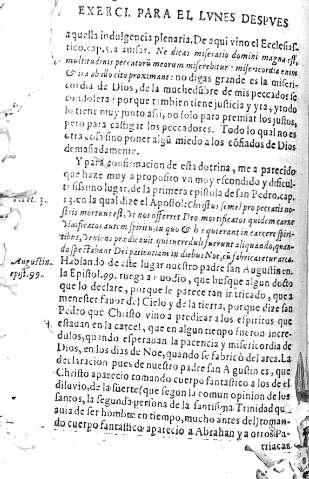 EXERCI. PARA EL LVNES DESPVES
aquella indulgencia plenaria. De aqui vino el Ecclesias
tico. cap. 5. a auisar. Ne dicas miseratio domini magna est,
multitudinis peccatorũ meorum miserebitur: misericordia enim
& ira ab illo cito proximant: no digas grande es la miseri-
cordia de Dios, de la muchedũbre de mis peccados se
condolera: porque tambien tiene justicia y yra, y todo
lo tiene muy junto assi, no solo para premiar los justos,
pero para castigar los peccadores. Todo lo qual no es
otra cosa sino poner algũ miedo a los cõfiados de Dios
demasiadamente.
Y para confirmacion de esta dotrina, me a parecido
que haze muy a proposito vn muy escondido y dificul-
tosissimo lugar, de la primera epistola de san Pedro. cap.
3. en la qual dize el Apostol: Christus semel pro peccatis no-
stris mortuus est, Vt nos offerret Deo mortificatos quidem carne
Viuificatos autem spiritu, in quo & his qui erant in carcere spiri-
tibus, Veniens prædicauit, qui increduli fuerunt aliquando, quan-
do expectabant Dei patientiam in diebus Noe, cũ fabricaretur arca.
Augustin.
epist. 99.
Hablando de este lugar nuestro padre san Augustin en
la Epistol. 99. ruega a Euodio, que busque algun docto
que lo declare, porque le parece tan intricado, que a
menester fauor del Cielo y de la tierra, porque dize san
Pedro que Christo vino a predicar a los espiritus que
estauan en la carcel, que en algun tiempo fueron incre-
dulos, quando esperauan la paciencia y misericordia de
Dios, en los dias de Noe, quando se fabricó del arca. La
declaracion pues de nuestro padre san Agustin es, que
Christo aparecio tomando cuerpo fantastico a los de el
diluvio, de la suerte (que segun la comun opinion de los
santos, la segunda persona de la santissima Trinidad qu
auia de ser hombre en tiempo, mucho antes del) toman-
do cuerpo fantastico aparecio a Abrahan y a otros Pa-
triarcas